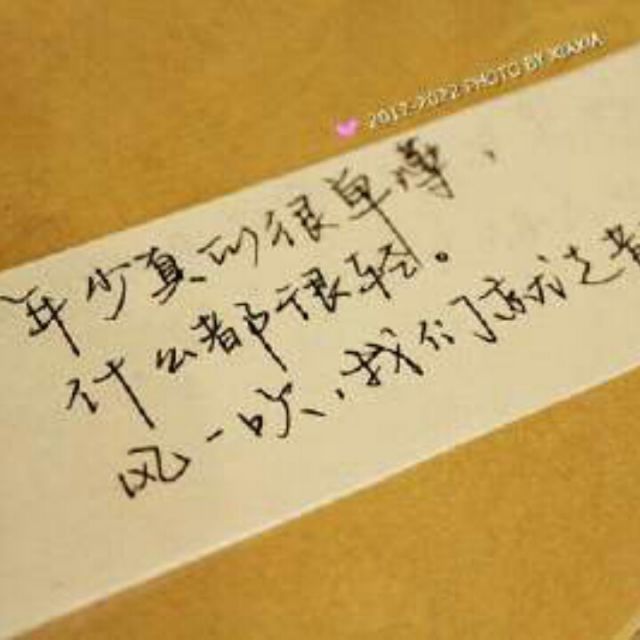 2012-2022 PHOTO BY XIAXIA
年少真的很单薄，
什么都很轻。
风一吹，我们就这着